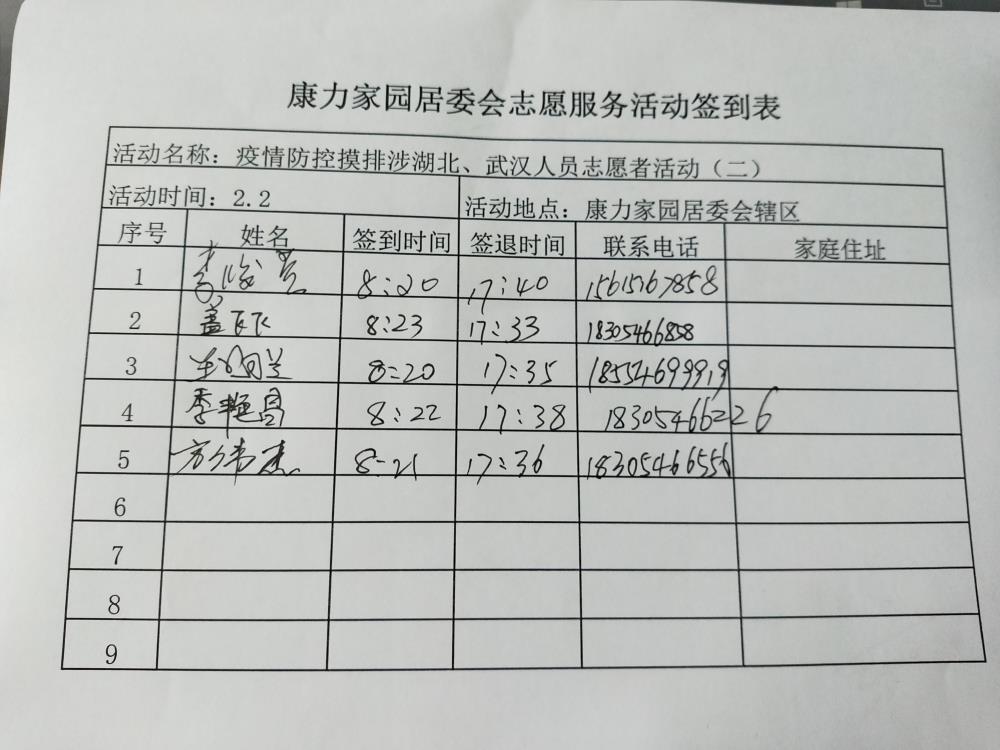 康力家园居委会志愿服务活动签到表
活动名称：疫情防控摸排涉湖北、武汉人员志愿者活动（二）
活动时间：2.2 活动地点：康力家园居委会辖区
序号 姓名 签到时间 签退时间 联系电话 家庭住址
1 8:20 17:40 15615167858
2 盖飞飞 8:23 17:33 18305466858
3 8:20 17:35 18554699919
4 季艳昌 8:22 17:38 18305466226
5 方伟杰 8-21 17:36 18305466556
6
7
8
9